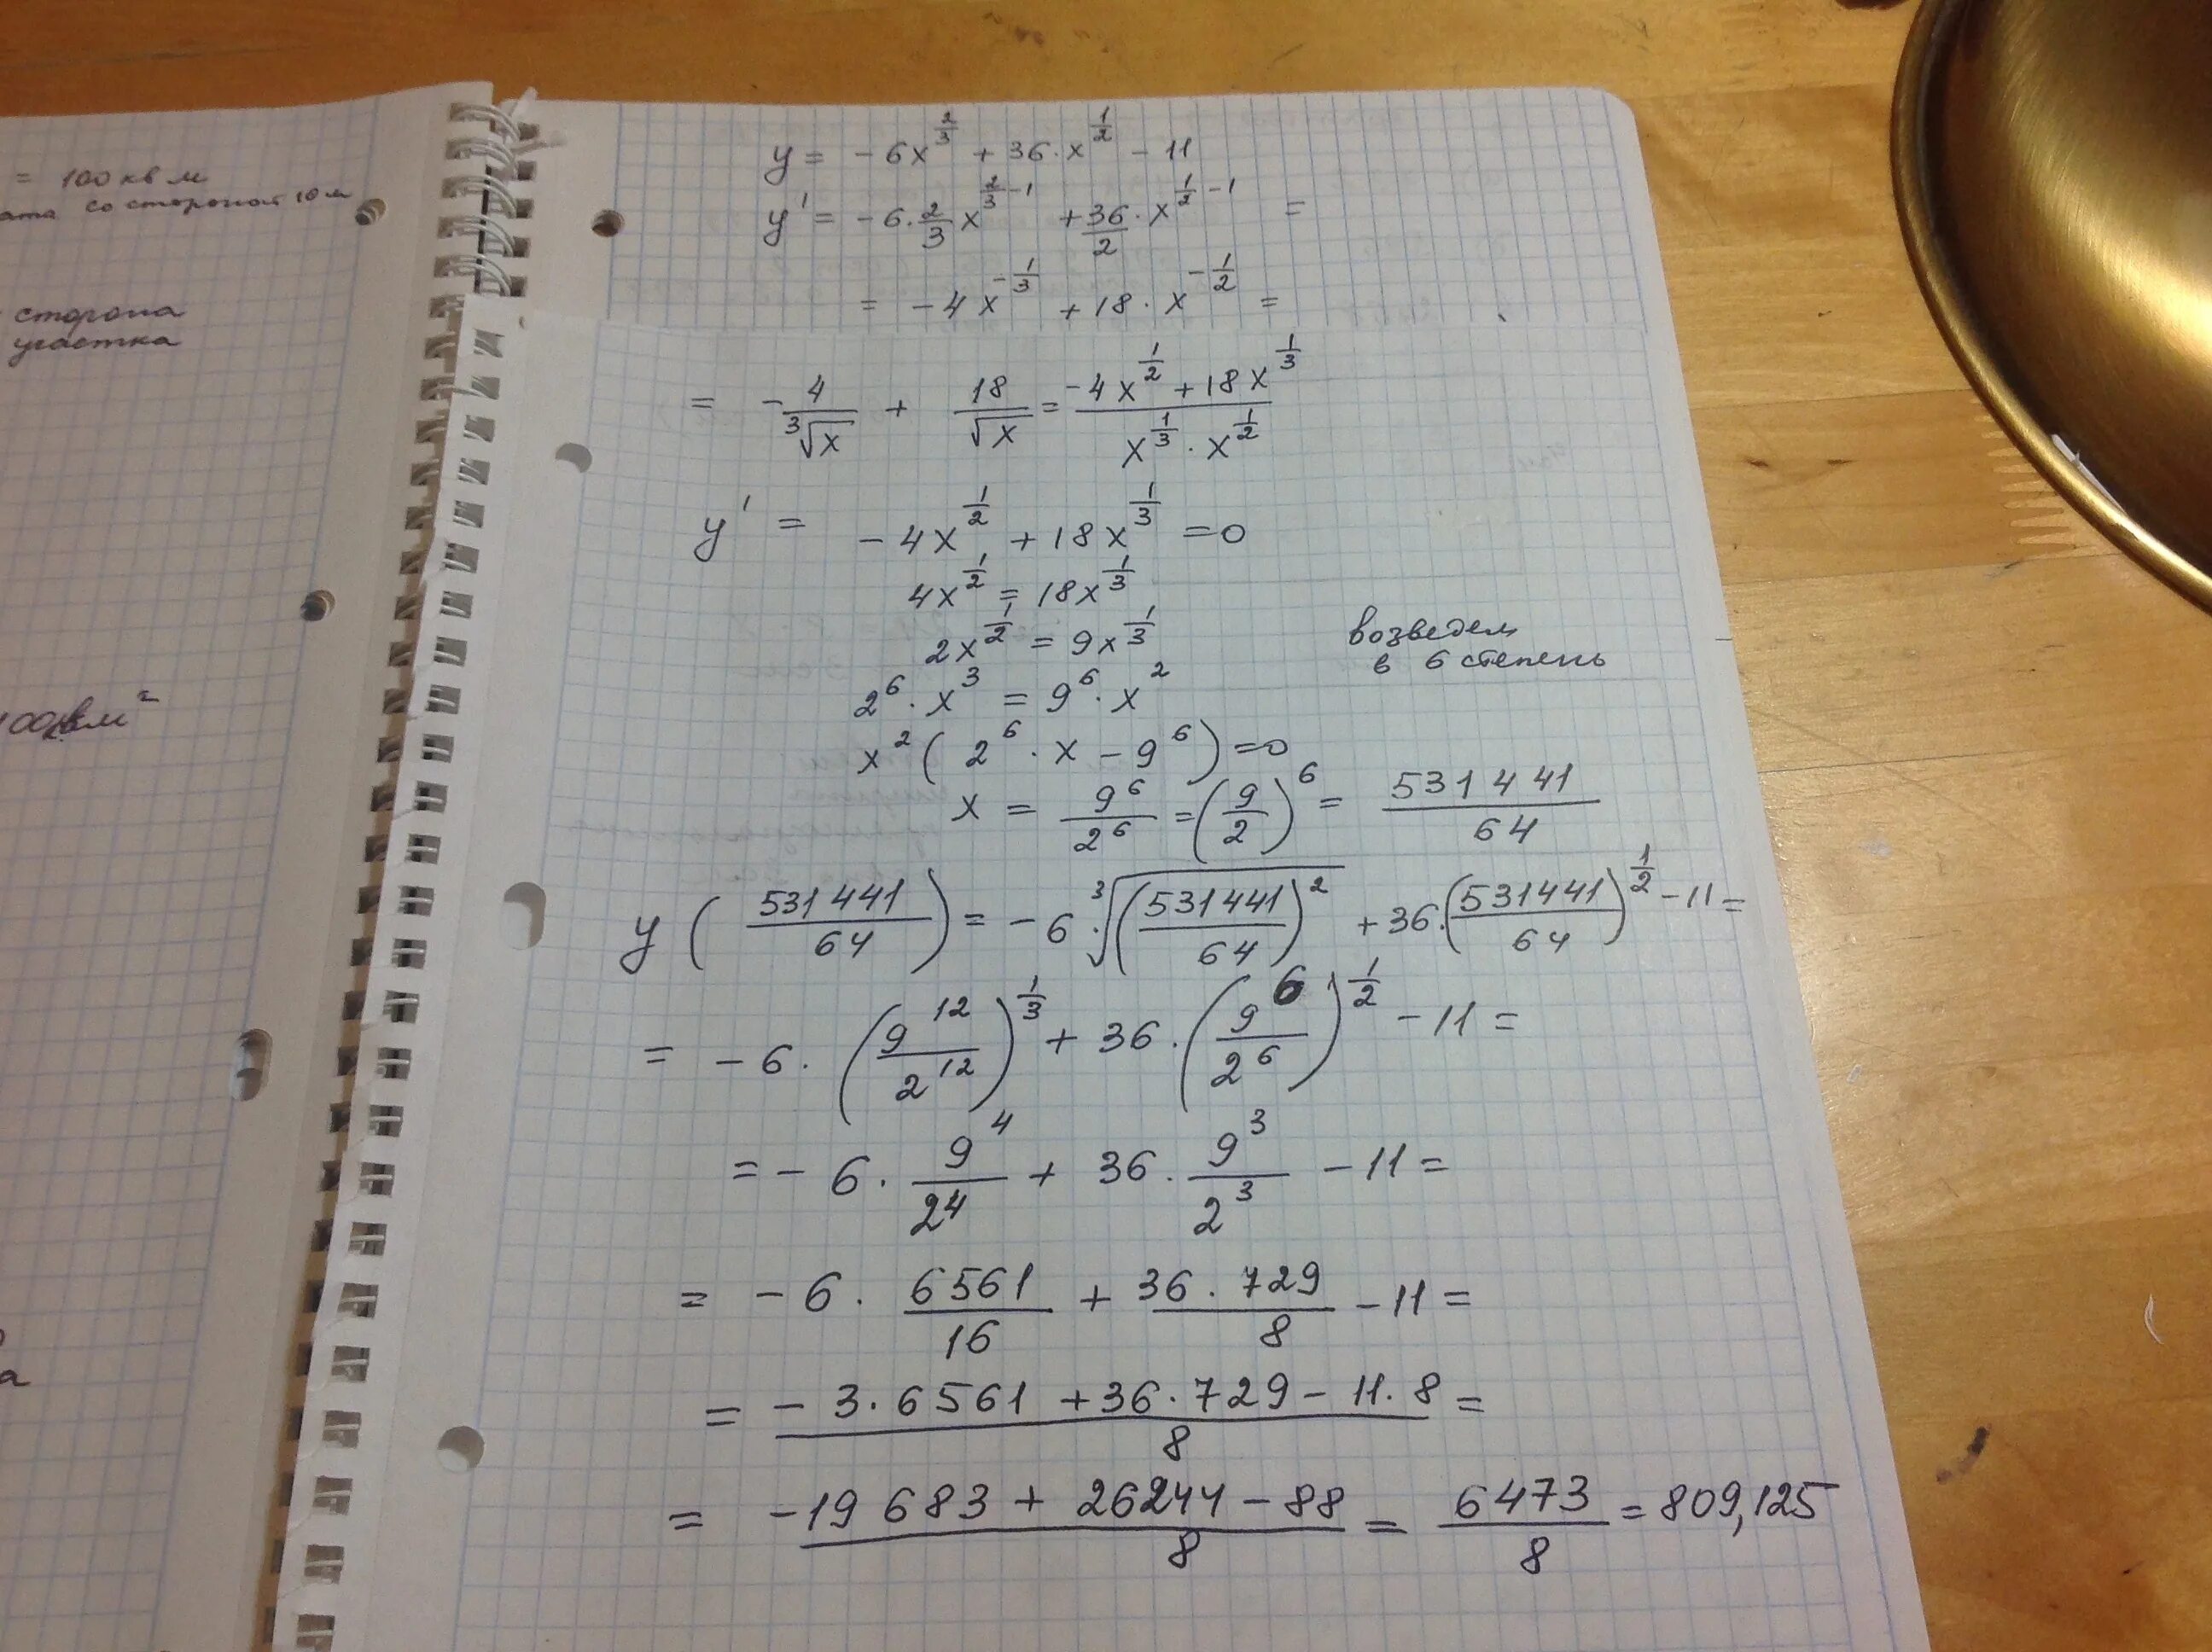 = 100 кв м
со стороной 10 м
сторона
участка
y = -6x^(2/3) + 36·x^(1/2) - 11
y' = -6·2/3 x^(2/3 - 1) + 36/2·x^(1/2 - 1) =
= -4x^(-1/3) + 18·x^(-1/2) =
= -4/∛x + 18/√x = (-4x^(1/2) + 18x^(1/3))/(x^(1/3)·x^(1/2))
y' = -4x^(1/2) + 18x^(1/3) = 0
4x^(1/2) = 18x^(1/3)
2x^(1/2) = 9x^(1/3) возведем
в 6 степень
2^6·x^3 = 9^6·x^2
x^2(2^6·x - 9^6) = 0
x = 9^6/2^6 = (9/2)^6 = 531441/64
y(531441/64) = -6·∛((531441/64)^2) + 36·(531441/64)^(1/2) - 11 =
= -6·(9^12/2^12)^(1/3) + 36·(9^6/2^6)^(1/2) - 11 =
= -6·9^4/2^4 + 36·9^3/2^3 - 11 =
= -6·6561/16 + 36·729/8 - 11 =
= (-3·6561 + 36·729 - 11·8)/8 =
= (-19683 + 26244 - 88)/8 = 6473/8 = 809,125